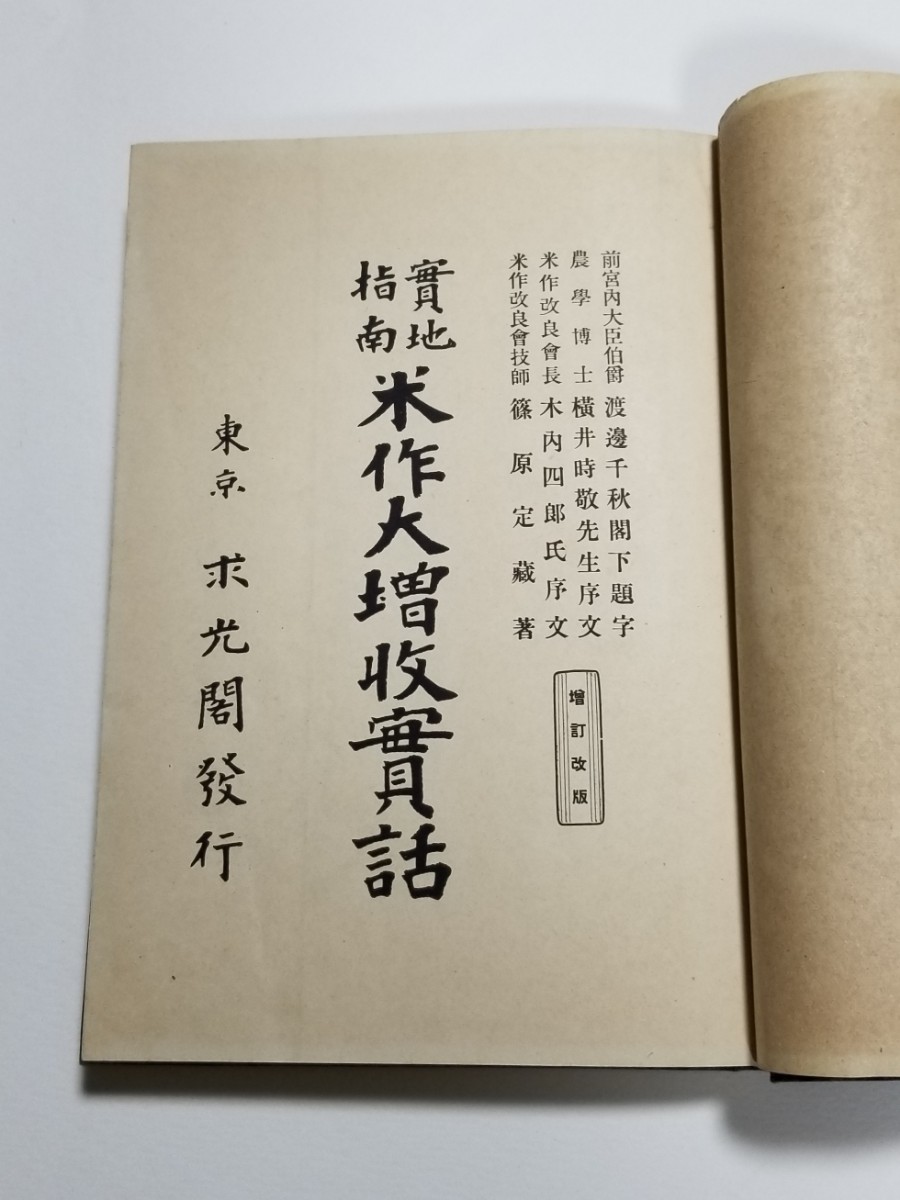 前宮內大臣伯爵 渡邊千秋閣下題字
農學博士 橫井時敬先生序文
米作改良會長 木內四郞氏序文
米作改良會技師 篠原定藏著
增訂改版
實地
指南
米作大增收實話
東京 求光閣發行